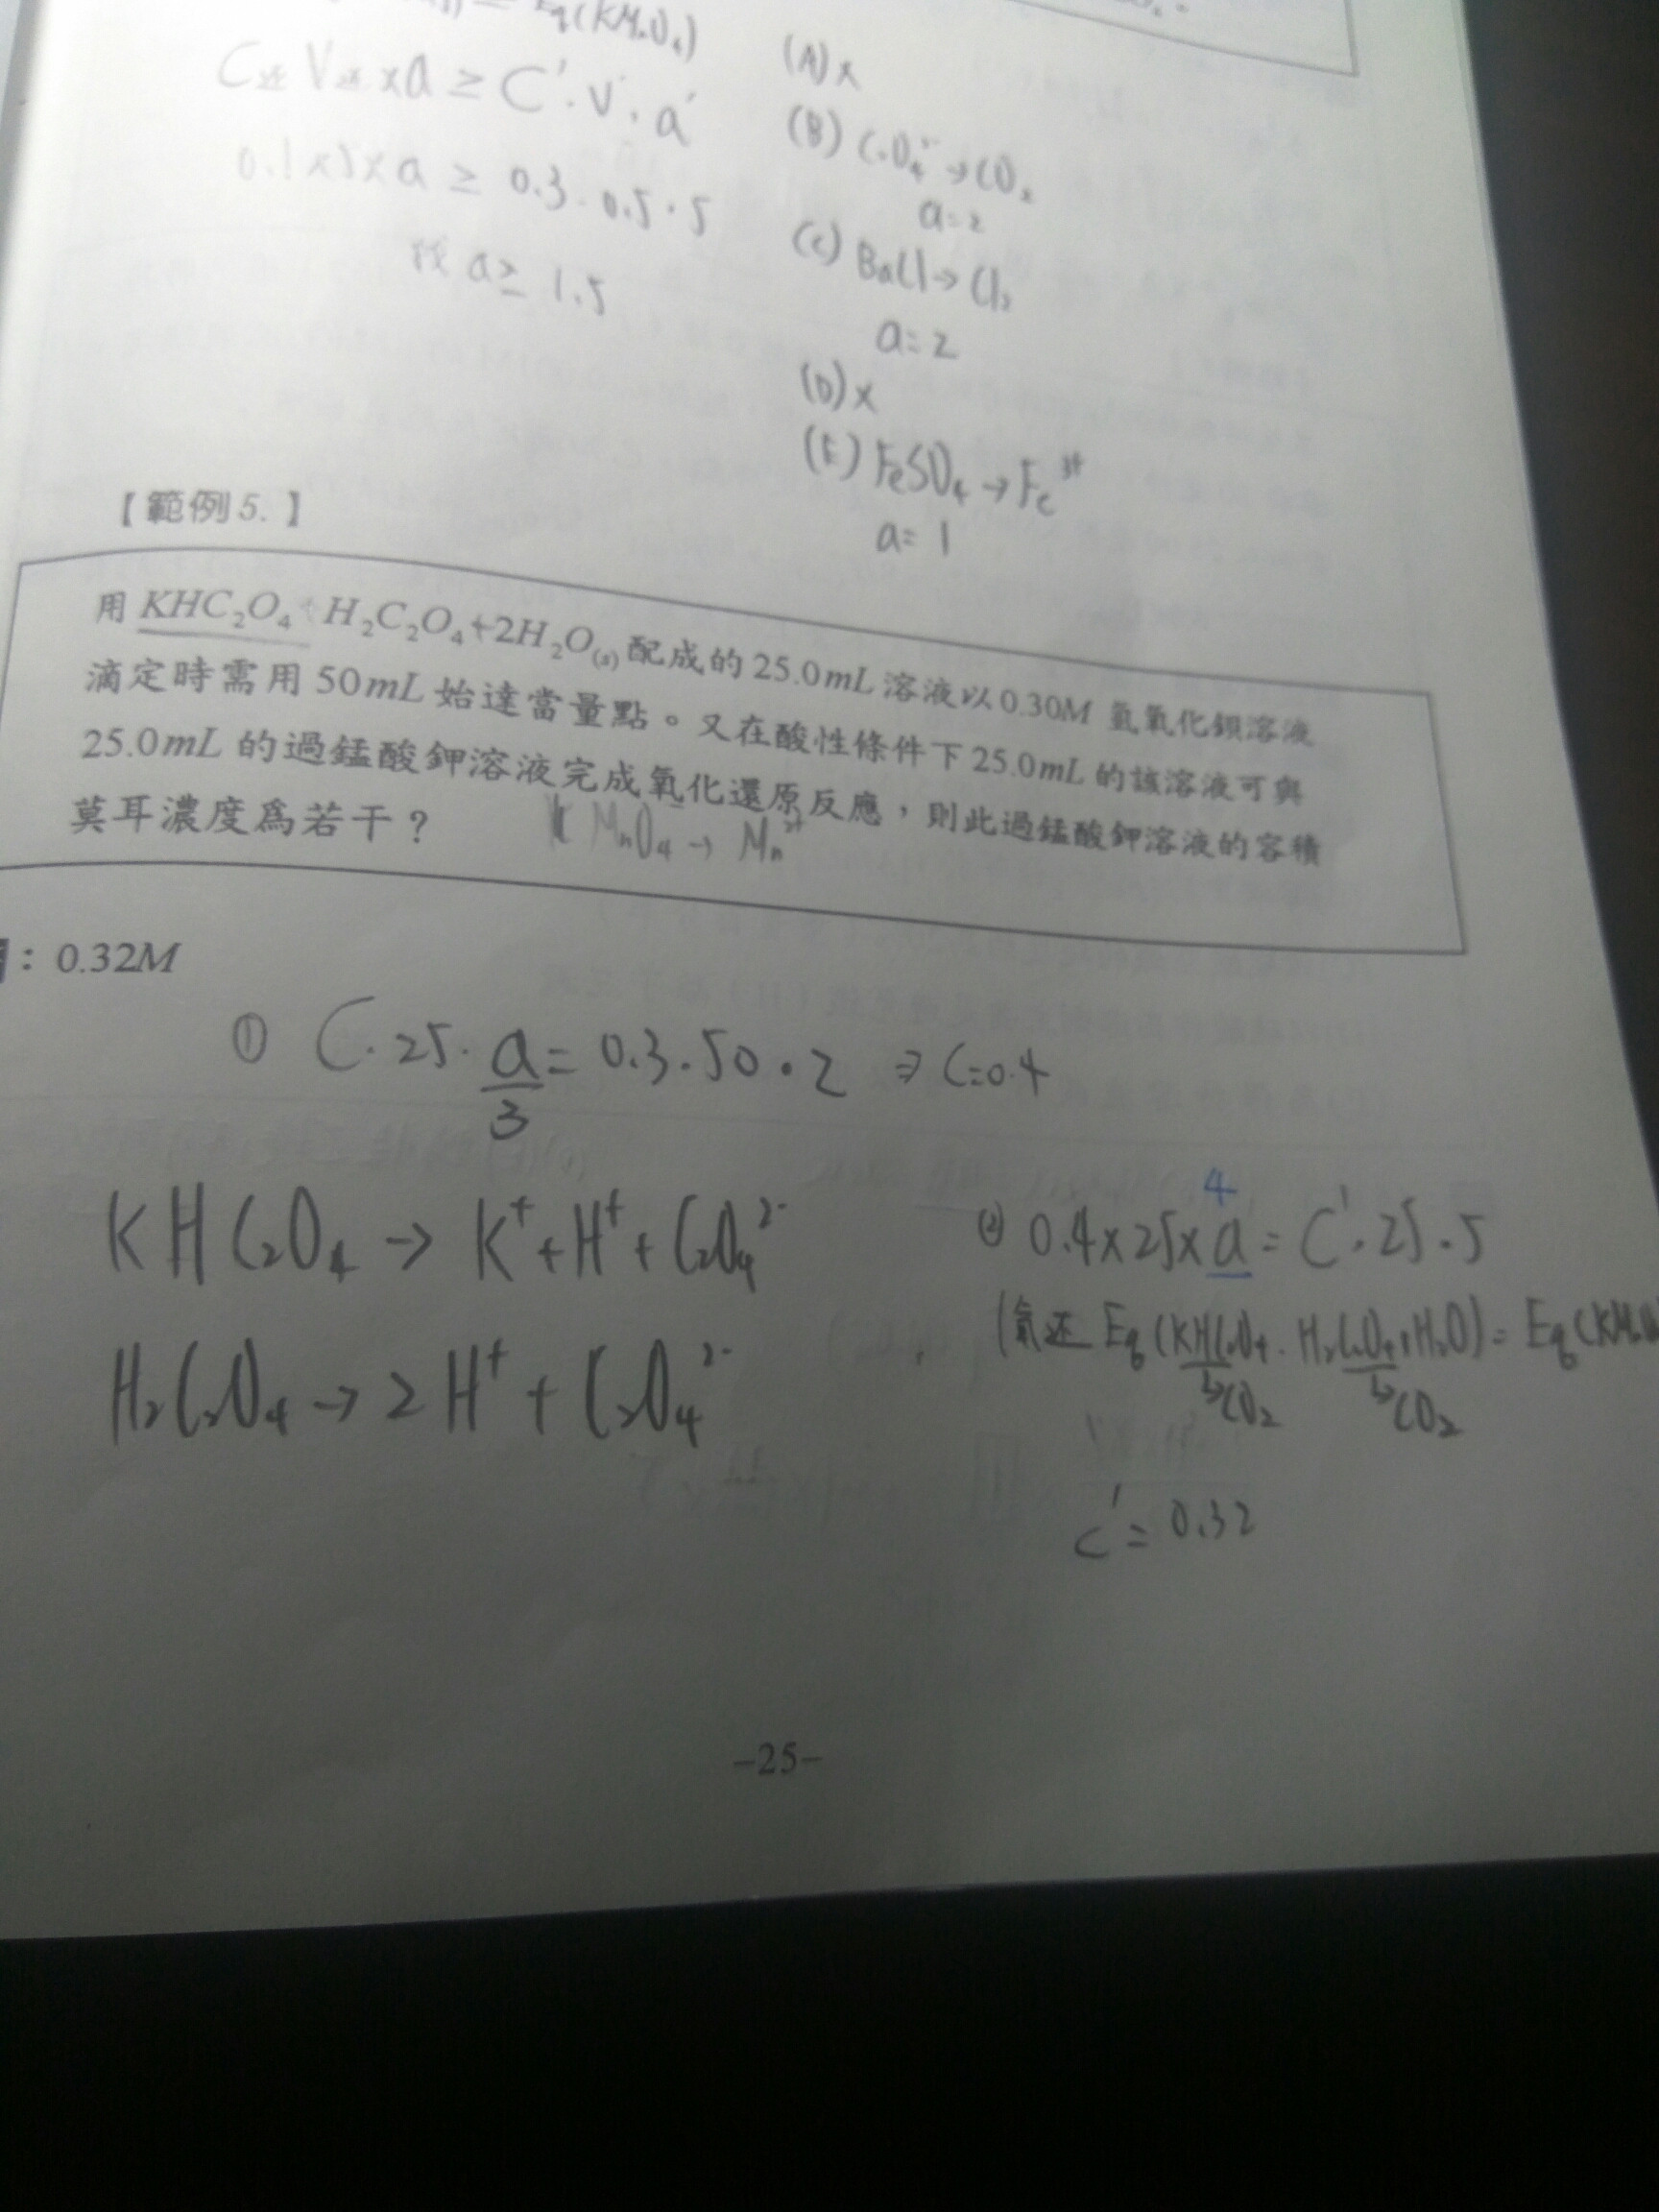 Eq(KMnO4)
C还 V还 xa ≥ C'·V'·a'
0.1x5xa ≥ 0.3·0.5·5
找 a≥ 1.5
(A) x
(B) C2O4²⁻ → CO2
a=2
(C) BaCl → Cl2
a=2
(D) x
(E) FeSO4 → Fe³⁺
a=1
【範例5.】
用 KHC₂O₄·H₂C₂O₄+2H₂O(s) 配成的 25.0mL 溶液以 0.30M 氫氧化鋇溶液
滴定時需用 50mL 始達當量點。又在酸性條件下 25.0mL 的該溶液可與
25.0mL 的過錳酸鉀溶液完成氧化還原反應，則此過錳酸鉀溶液的容積
莫耳濃度為若干？
KMnO4 → Mn²⁺
: 0.32M
① C·25·a = 0.3·50·2 ⇒ C=0.4
3
KHC2O4 → K⁺+H⁺+C2O4²⁻
H2C2O4 → 2H⁺+C2O4²⁻
4
② 0.4x25xa = C'·25·5
Eq(KHC2O4·H2C2O4+H2O) = Eq(KMnO
CO2 CO2
C'=0.32
-25-